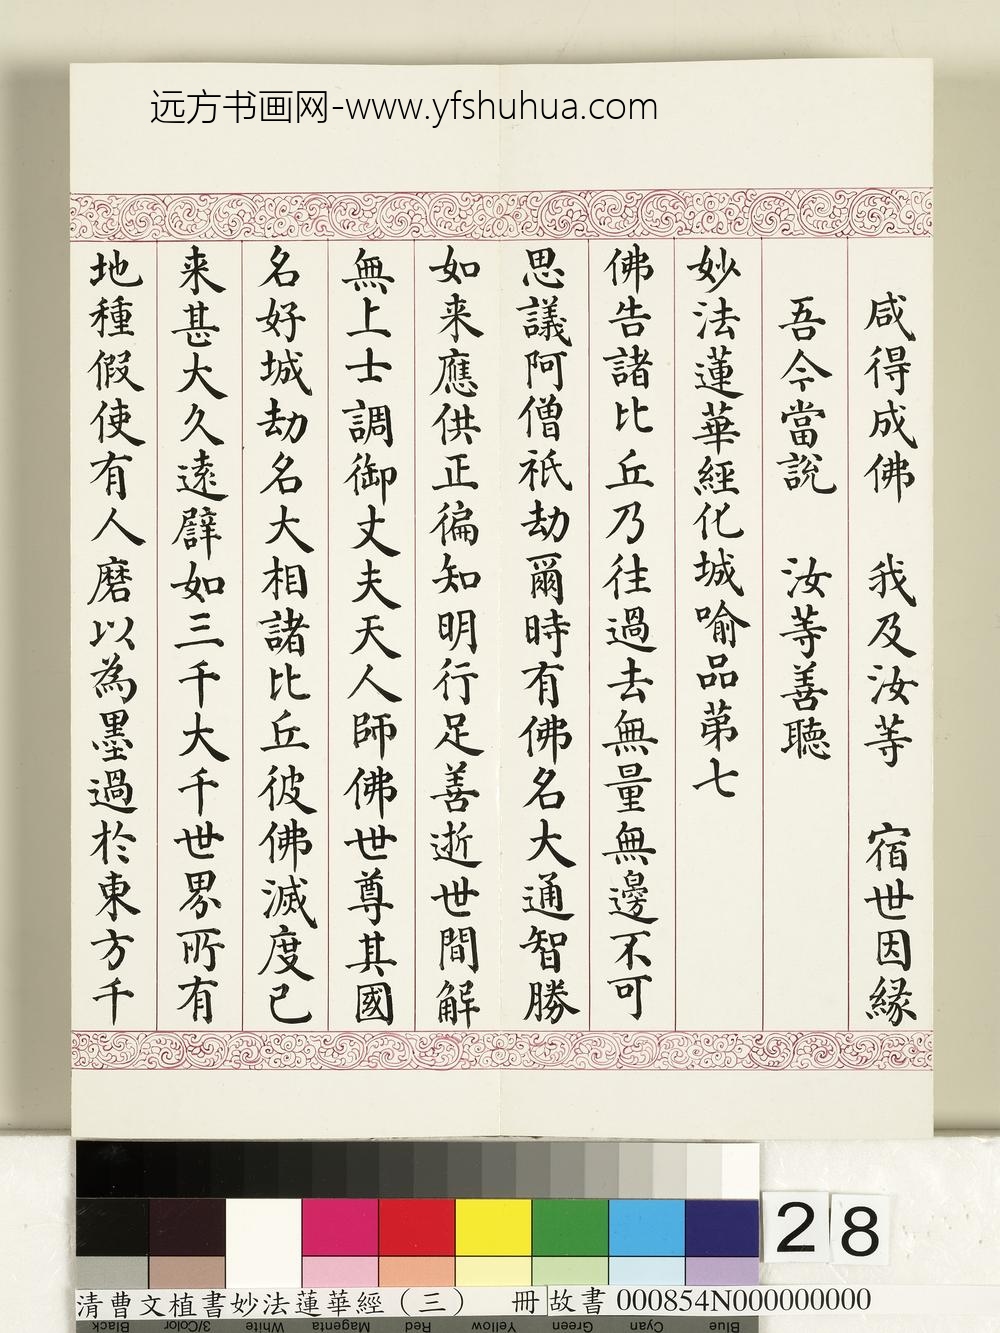 远方书画网-www.yfshuhua.com
咸得成佛　我及汝等　宿世因緣
吾今當說　汝等善聽
妙法蓮華經化城喻品苐七
佛告諸比丘乃往過去無量無邊不可
思議阿僧祇劫爾時有佛名大通智勝
如来應供正徧知明行足善逝世間解
無上士調御丈夫天人師佛世尊其國
名好城劫名大相諸比丘彼佛滅度已
来甚大久遠辟如三千大千世界所有
地種假使有人磨以為墨過於東方千
28
清曹文植書妙法蓮華經（三）　冊 故書 000854N000000000
Black 3/Color White Magenta Red Yellow Green Cyan Blue